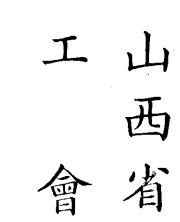 山西省
工會